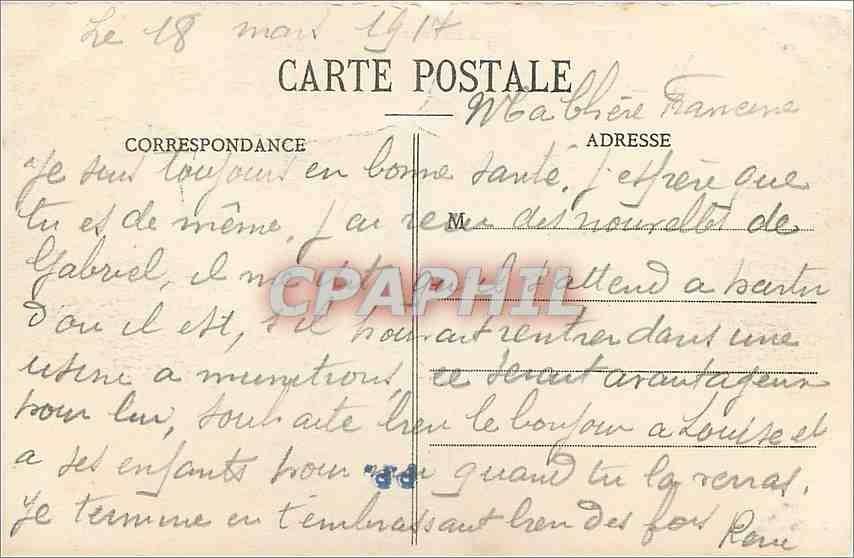 Le 18 mars 1917
CARTE POSTALE
Ma Chère Francine
CORRESPONDANCE
ADRESSE
Je suis toujours en bonne santé. J'espère que
tu es de même, j'ai recu des nouvelles de
M
Gabriel, il me dit qu'il s'attend a partir
CPAPHIL
d'ou il est, s'il pouvait rentrer dans une
usine a munitions, ce serait avantageux
pour lui, souhaite bien le bonjour a Louise et
a ses enfants pour moi quand tu la verras.
Je termine en t'embrassant bien des fois